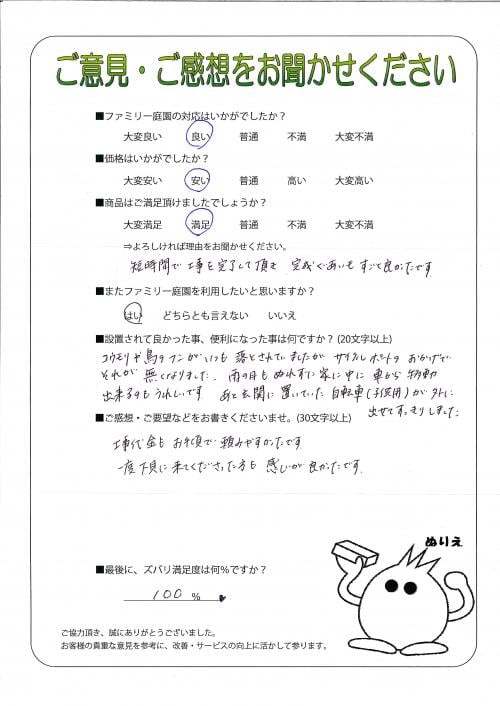 ご意見・ご感想をお聞かせください
■ファミリー庭園の対応はいかがでしたか？
大変良い 良い 普通 不満 大変不満
■価格はいかがでしたか？
大変安い 安い 普通 高い 大変高い
■商品はご満足頂けましたでしょうか？
大変満足 満足 普通 不満 大変不満
⇒よろしければ理由をお聞かせください。
短時間で工事を完了して頂き 完成ぐあいも すごく良かたです
■またファミリー庭園を利用したいと思いますか？
はい どちらとも言えない いいえ
■設置されて良かった事、便利になった事は何ですか？(20文字以上)
コウモリや鳥のフンがいつも落とされていましたが サイクルポートのおかげで
それが無くなりました。雨の日もぬれずに家に中に車から移動
出来るのもうれしいです あと玄関に置いていた自転車(子供用)が外に
出せてすっきりしました
■ご感想・ご要望などをお書きくださいませ。(30文字以上)
工事代金も お手頃で頼みやすかたです
一度下見に来てくださった方も 感じが良かたです。
ぬりえ
■最後に、ズバリ満足度は何％ですか？
100 %
ご協力頂き、誠にありがとうございました。
お客様の貴重な意見を参考に、改善・サービスの向上に活かして参ります。